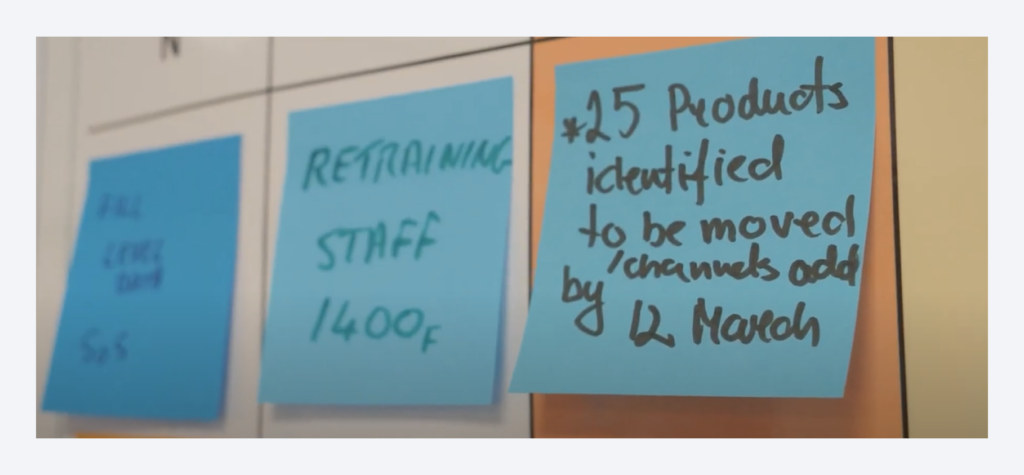 N
FILL
LEVEL
DATA
SOS
RETRAINING
STAFF
1400F
*25 Products
identified
to be moved
/channels add
by 12 March